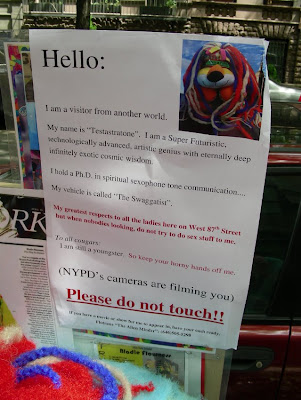 Hello:
I am a visitor from another world.
My name is "Testastratone". I am a Super Futuristic,
technologically advanced, artistic genius with eternally deep
infinitely exotic cosmic wisdom.
I hold a Ph.D. in spiritual sexophone tone communication....
My vehicle is called "The Swaggatist".
My greatest respects to all the ladies here on West 87th Street
but when nobodies looking, do not try to do sex stuff to me.
To all cougars:
I am still a youngster. So keep your horny hands off me.
(NYPD's cameras are filming you)
Please do not touch!!
If you have a movie or show for me to appear in, have your cash ready.